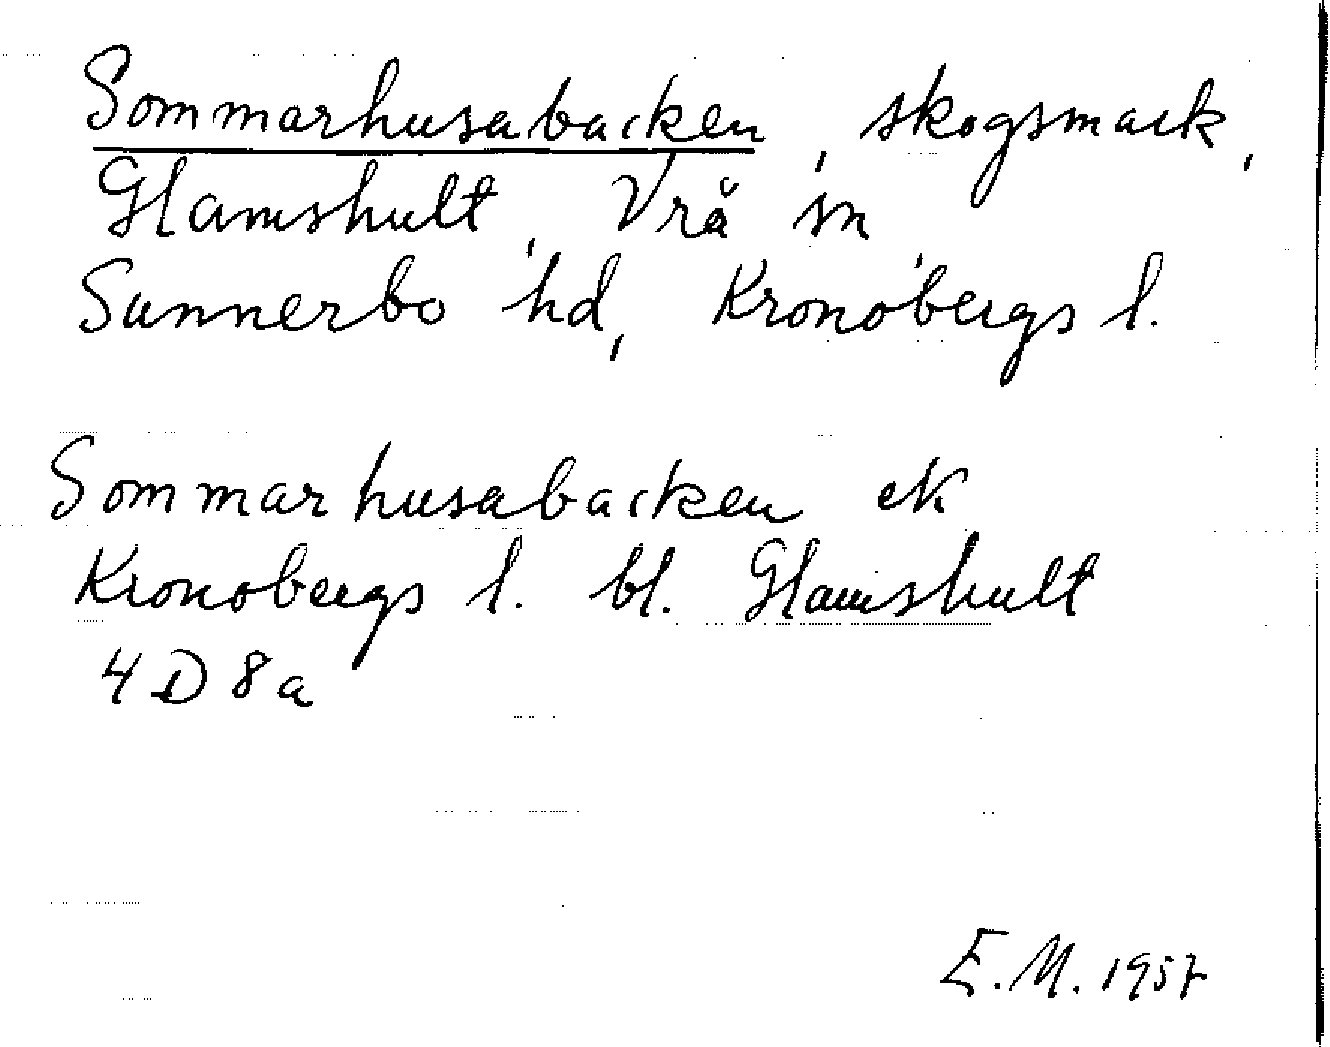 Sommarhusabacken, skogsmark,
Glamshult, Vrå sn,
Sunnerbo hd, Kronobergs l.
Sommarhusabacken ek
Kronobergs l. bl. Glamshult
4 D 8 a
E. M. 1957